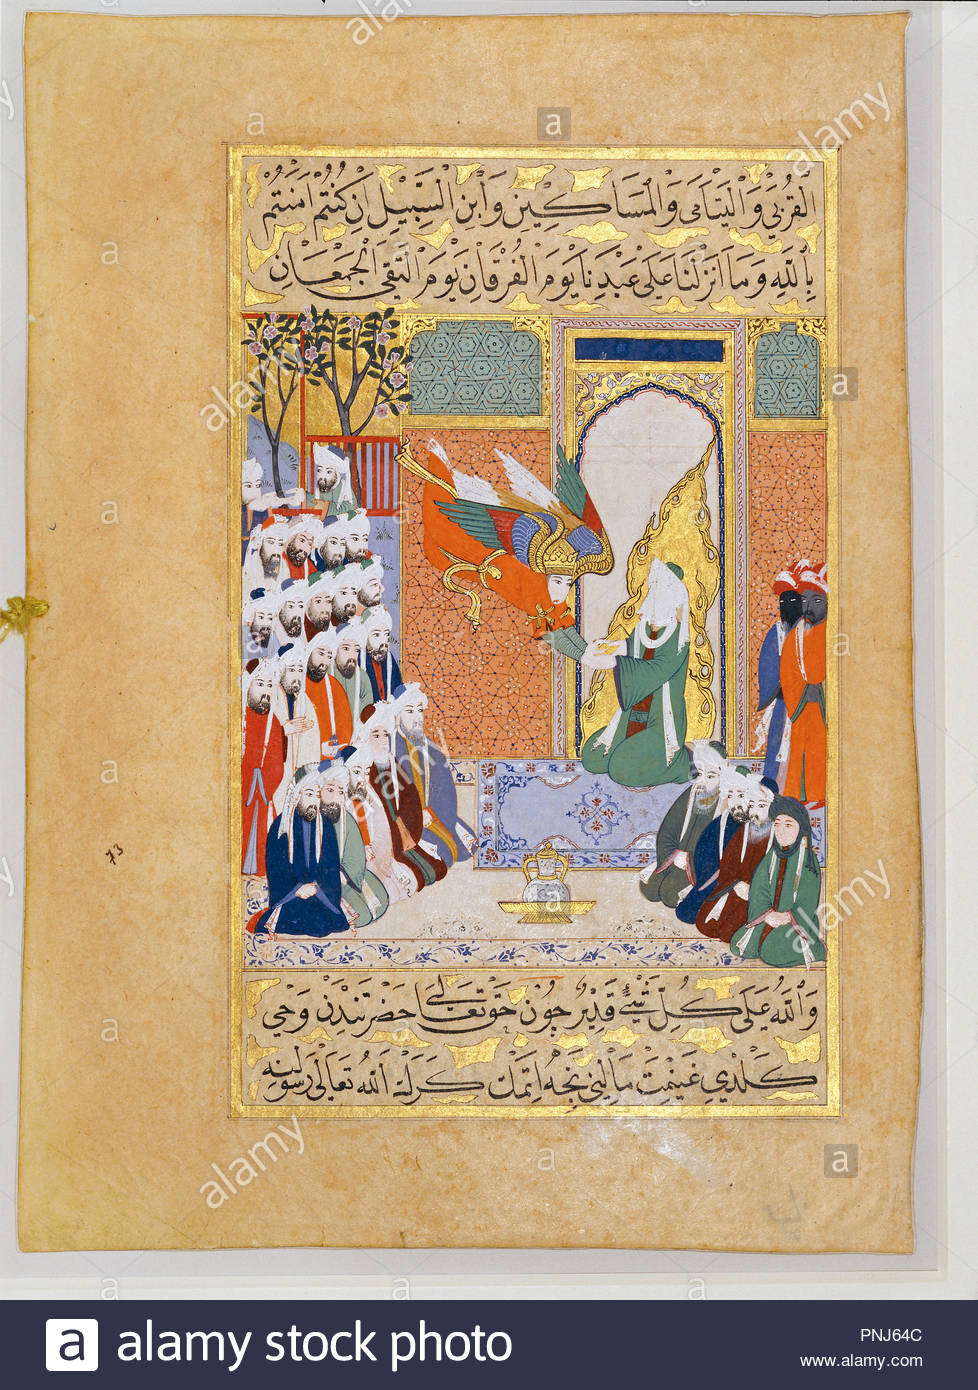 القُرْبَىٰ وَالْيَتَامَىٰ وَالْمَسَاكِينِ وَابْنِ السَّبِيلِ اِنْ كُنْتُمْ اٰمَنْتُمْ
بِاللّٰهِ وَمَا اَنْزَلْنَا عَلَىٰ عَبْدِنَا يَوْمَ الْفُرْقَانِ يَوْمَ الْتَقَى الْجَمْعَانِ
وَاللّٰهُ عَلَىٰ كُلِّ شَيْءٍ قَدِيرٌ چون حق تعالى حضرتندن وحي
كلدي غنيمت مالني نجه اتمك كرك الله تعالى رسولنه
73
alamy
a
alamy stock photo
PNJ64C
www.alamy.com